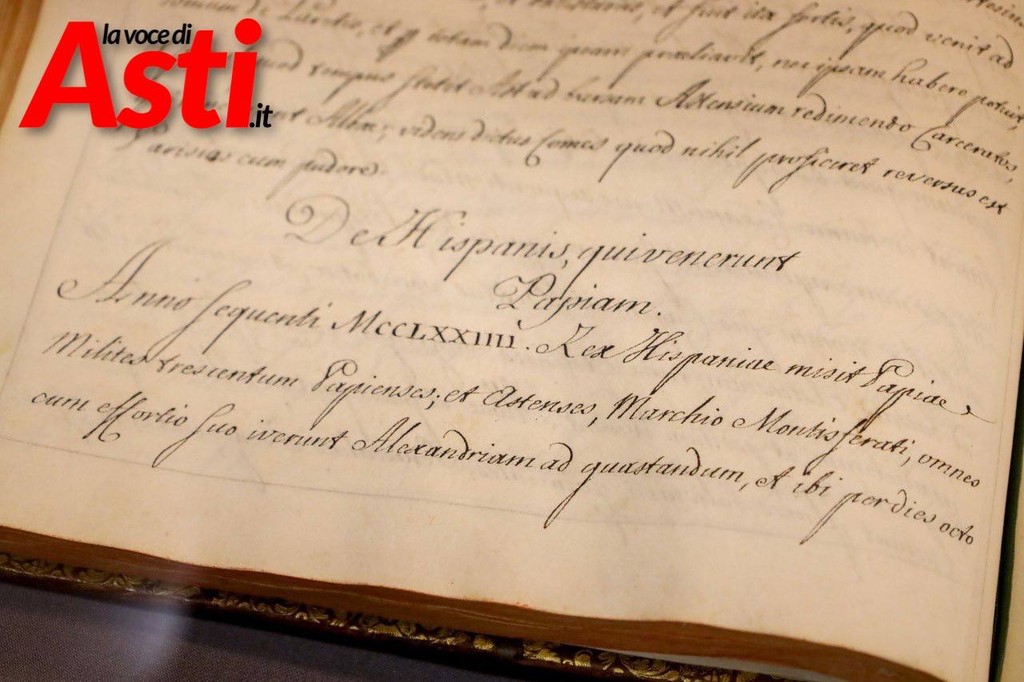 la voce di
Asti
.it
et fuit ita fortis, quod venit ad
et totam diem quam præliavit, nec ipsam habere potuit,
quod tempus stetit Ast ad bursam Astensium redimendo Carceratos,
Albæ; videns dictus Comes quod nihil proficeret reversus est
Parisias cum pudore.
De Hispanis, qui venerunt
Papiam.
Anno sequenti MCCLXXIIII. Rex Hispaniae misit Papiae,
Milites trescentum Papienses; et Astenses, Marchio Montisferati, omnes
cum effortio suo iverunt Alexandriam ad guastandum, et ibi per dies octo